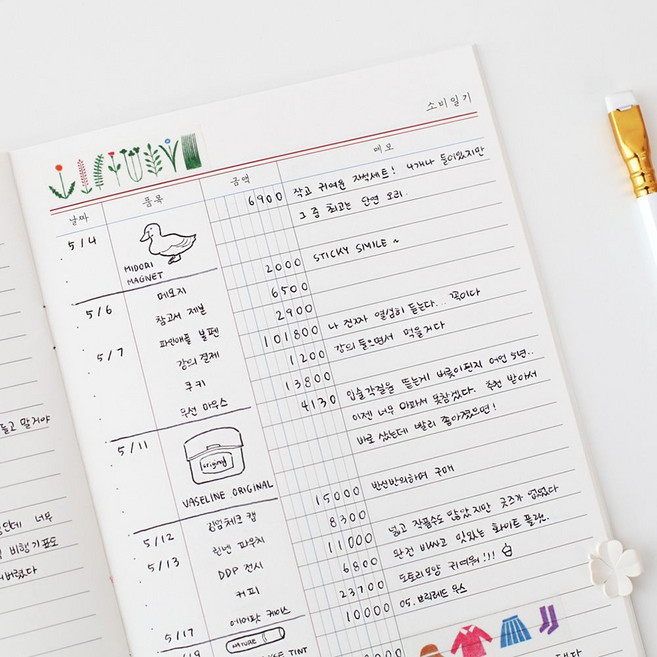 소비일기
날짜 품목 금액 메모
5/4 MIDORI MAGNET 6900 작고 귀여운 자석세트! 4개나 들어있지만
그 중 최고는 단연 오리.
메모지 2000 STICKY SMILE ~
5/6 참고서 제본 6500
파인애플 볼펜 2900
5/7 강의 결제 101800 나 진짜 열심히 듣는다... 꼭이다
쿠키 1200 강의 들으면서 먹을거다
무선 마우스 13800
5/11 VASELINE ORIGINAL 4130 입술각질을 뜯는게 버릇이된지 어언 5년..
original
이젠 너무 아파서 못참겠다. 추천 받아서
바로 샀는데 빨리 좋아졌으면!
5/12 깅엄체크 캡 15000 반신반의하며 구매
린넨 파우치 8300
5/13 DDP 전시 11000 넓고 작품수도 많았지만 굿즈가 없었다
커피 6800 완전 비싸고 맛있는 화이트 플랫.
에어팟 케이스 23700 도토리모양 귀여워!!!
5/17 10000 05. 브릭레드 무스
NATURE
TINT
들고 말거야
너무
비행기표도
버렸다